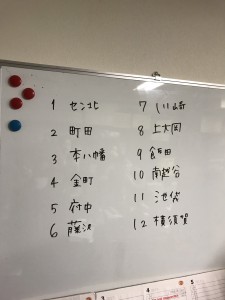 1 セン北
2 町田
3 本八幡
4 金町
5 府中
6 藤沢
7 川崎
8 上大岡
9 飯田
10 南越谷
11 池袋
12 横須賀
3
4
5